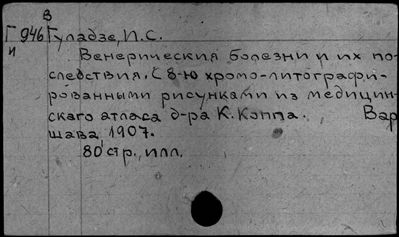 В
Г 946 Гуладзе, И.С.
и
Венерическия болезни и их по-
следствия. С 8-ю хромо-литографи-
рованными рисунками из медицин-
скаго атласа д-ра К. Коппа. Вар
шава, 1907.
80 стр., илл.